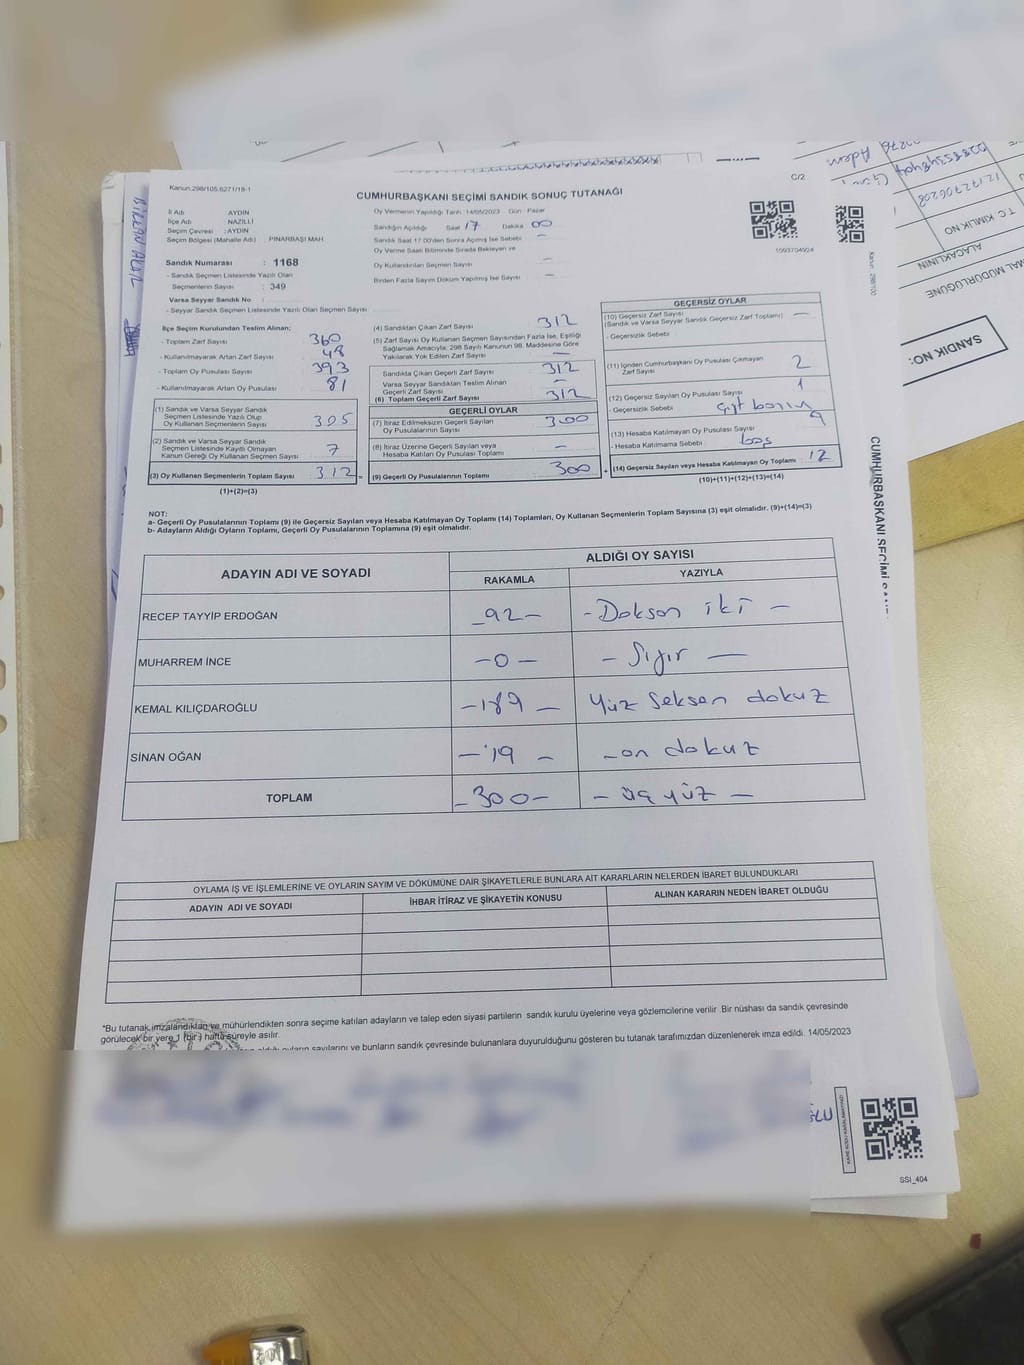 Kanun:298/105,6271/18-1
C/2
CUMHURBAŞKANI SEÇİMİ SANDIK SONUÇ TUTANAĞI
İl Adı : AYDIN
İlçe Adı : NAZİLLİ
Seçim Çevresi : AYDIN
Seçim Bölgesi (Mahalle Adı) : PINARBAŞI MAH
Sandık Numarası : 1168
- Sandık Seçmen Listesinde Yazılı Olan
Seçmenlerin Sayısı : 349
Varsa Seyyar Sandık No :
- Seyyar Sandık Seçmen Listesinde Yazılı Olan Seçmen Sayısı
Oy Vermenin Yapıldığı Tarih 14/05/2023 Gün Pazar
Sandığın Açıldığı Saat 17 Dakika 00
Sandık Saat 17.00'den Sonra Açılmış İse Sebebi
Oy Verme Saati Bitiminde Sırada Bekleyen ve
Oy Kullandırılan Seçmen Sayısı —
Birden Fazla Sayım Döküm Yapılmış İse Sayısı —
1093704924
İlçe Seçim Kurulundan Teslim Alınan;
- Toplam Zarf Sayısı 360
- Kullanılmayarak Artan Zarf Sayısı 48
- Toplam Oy Pusulası Sayısı 393
- Kullanılmayarak Artan Oy Pusulası 81
(1) Sandık ve Varsa Seyyar Sandık
Seçmen Listesinde Yazılı Olup
Oy Kullanan Seçmenlerin Sayısı 305
(2) Sandık ve Varsa Seyyar Sandık
Seçmen Listesinde Kayıtlı Olmayan
Kanun Gereği Oy Kullanan Seçmen Sayısı 7
(3) Oy Kullanan Seçmenlerin Toplam Sayısı 312
(1)+(2)=(3)
(4) Sandıktan Çıkan Zarf Sayısı 312
(5) Zarf Sayısı Oy Kullanan Seçmen Sayısından Fazla İse, Eşitliği
Sağlamak Amacıyla; 298 Sayılı Kanunun 98. Maddesine Göre
Yakılarak Yok Edilen Zarf Sayısı —
Sandıkta Çıkan Geçerli Zarf Sayısı 312
Varsa Seyyar Sandıktan Teslim Alınan
Geçerli Zarf Sayısı —
(6) Toplam Geçerli Zarf Sayısı 312
GEÇERLİ OYLAR
(7) İtiraz Edilmeksizin Geçerli Sayılan
Oy Pusulalarının Sayısı 300
(8) İtiraz Üzerine Geçerli Sayılan veya
Hesaba Katılan Oy Pusulası Toplamı —
(9) Geçerli Oy Pusulalarının Toplamı 300
GEÇERSİZ OYLAR
(10) Geçersiz Zarf Sayısı —
(Sandık ve Varsa Seyyar Sandık Geçersiz Zarf Toplamı)
- Geçersizlik Sebebi
(11) İçinden Cumhurbaşkanı Oy Pusulası Çıkmayan
Zarf Sayısı 2
(12) Geçersiz Sayılan Oy Pusulası Sayısı 1
- Geçersizlik Sebebi
(13) Hesaba Katılmayan Oy Pusulası Sayısı 9
- Hesaba Katılmama Sebebi boş
(14) Geçersiz Sayılan veya Hesaba Katılmayan Oy Toplamı 12
(10)+(11)+(12)+(13)=(14)
NOT:
a- Geçerli Oy Pusulalarının Toplamı (9) ile Geçersiz Sayılan veya Hesaba Katılmayan Oy Toplamı (14) Toplamları, Oy Kullanan Seçmenlerin Toplam Sayısına (3) eşit olmalıdır. (9)+(14)=(3)
b- Adayların Aldığı Oyların Toplamı, Geçerli Oy Pusulalarının Toplamına (9) eşit olmalıdır.
ADAYIN ADI VE SOYADI
ALDIĞI OY SAYISI
RAKAMLA YAZIYLA
RECEP TAYYİP ERDOĞAN -92- -Doksan iki -
MUHARREM İNCE -0- - Sıfır -
KEMAL KILIÇDAROĞLU -189- Yüz Seksen dokuz
SİNAN OĞAN -19- -on dokuz
TOPLAM -300- - üç yüz -
OYLAMA İŞ VE İŞLEMLERİNE VE OYLARIN SAYIM VE DÖKÜMÜNE DAİR ŞİKAYETLERLE BUNLARA AİT KARARLARIN NELERDEN İBARET BULUNDUKLARI
ADAYIN ADI VE SOYADI
İHBAR İTİRAZ VE ŞİKAYETİN KONUSU
ALINAN KARARIN NEDEN İBARET OLDUĞU
*Bu tutanak imzalandıktan ve mühürlendikten sonra seçime katılan adayların ve talep eden siyasi partilerin sandık kurulu üyelerine veya gözlemcilerine verilir .Bir nüshası da sandık çevresinde
görülecek bir yere 1 (bir) hafta süreyle asılır.
oyların sayılarını ve bunların sandık çevresinde bulunanlara duyurulduğunu gösteren bu tutanak tarafımızdan düzenlenerek imza edildi. 14/05/2023
SSI_404
SANDIK NO:
T.C KİMLİK NO
ALACAKLININ